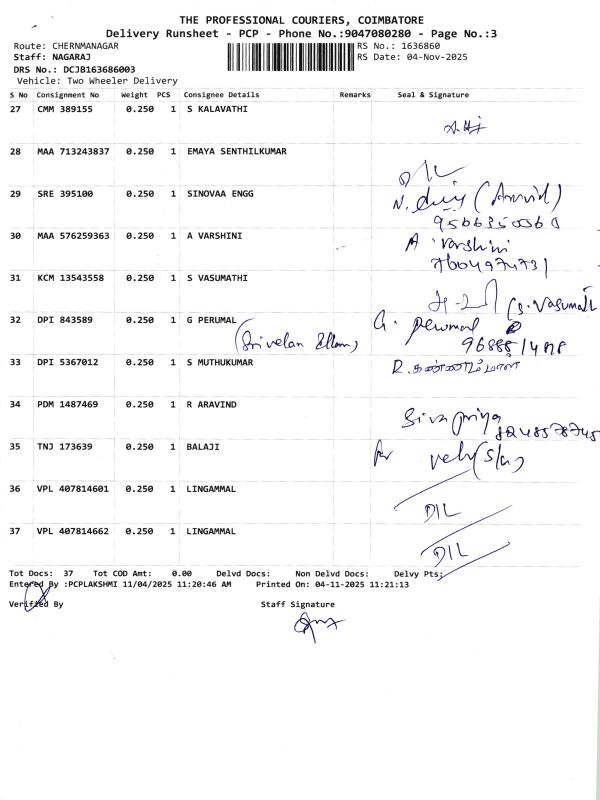 THE PROFESSIONAL COURIERS, COIMBATORE
Delivery Runsheet - PCP - Phone No.:9047080280 - Page No.:3
Route: CHERNMANAGAR RS No.: 1636860
Staff: NAGARAJ RS Date: 04-Nov-2025
DRS No.: DCJB163686003
Vehicle: Two Wheeler Delivery
S No Consignment No Weight PCS Consignee Details Remarks Seal & Signature
27 CMM 389155 0.250 1 S KALAVATHI
28 MAA 713243837 0.250 1 EMAYA SENTHILKUMAR
D/L
29 SRE 395100 0.250 1 SINOVAA ENGG
30 MAA 576259363 0.250 1 A VARSHINI
A Varshini
31 KCM 13543558 0.250 1 S VASUMATHI
(S. Vasumathi
32 DPI 843589 0.250 1 G PERUMAL G. perumal
(Srivelan Illam)
33 DPI 5367012 0.250 1 S MUTHUKUMAR
34 PDM 1487469 0.250 1 R ARAVIND
Sivapriya
35 TNJ 173639 0.250 1 BALAJI
36 VPL 407814601 0.250 1 LINGAMMAL
D/L
37 VPL 407814662 0.250 1 LINGAMMAL
D/L
Tot Docs: 37 Tot COD Amt: 0.00 Delvd Docs: Non Delvd Docs: Delvy Pts:
Entered By :PCPLAKSHMI 11/04/2025 11:20:46 AM Printed On: 04-11-2025 11:21:13
Verified By Staff Signature